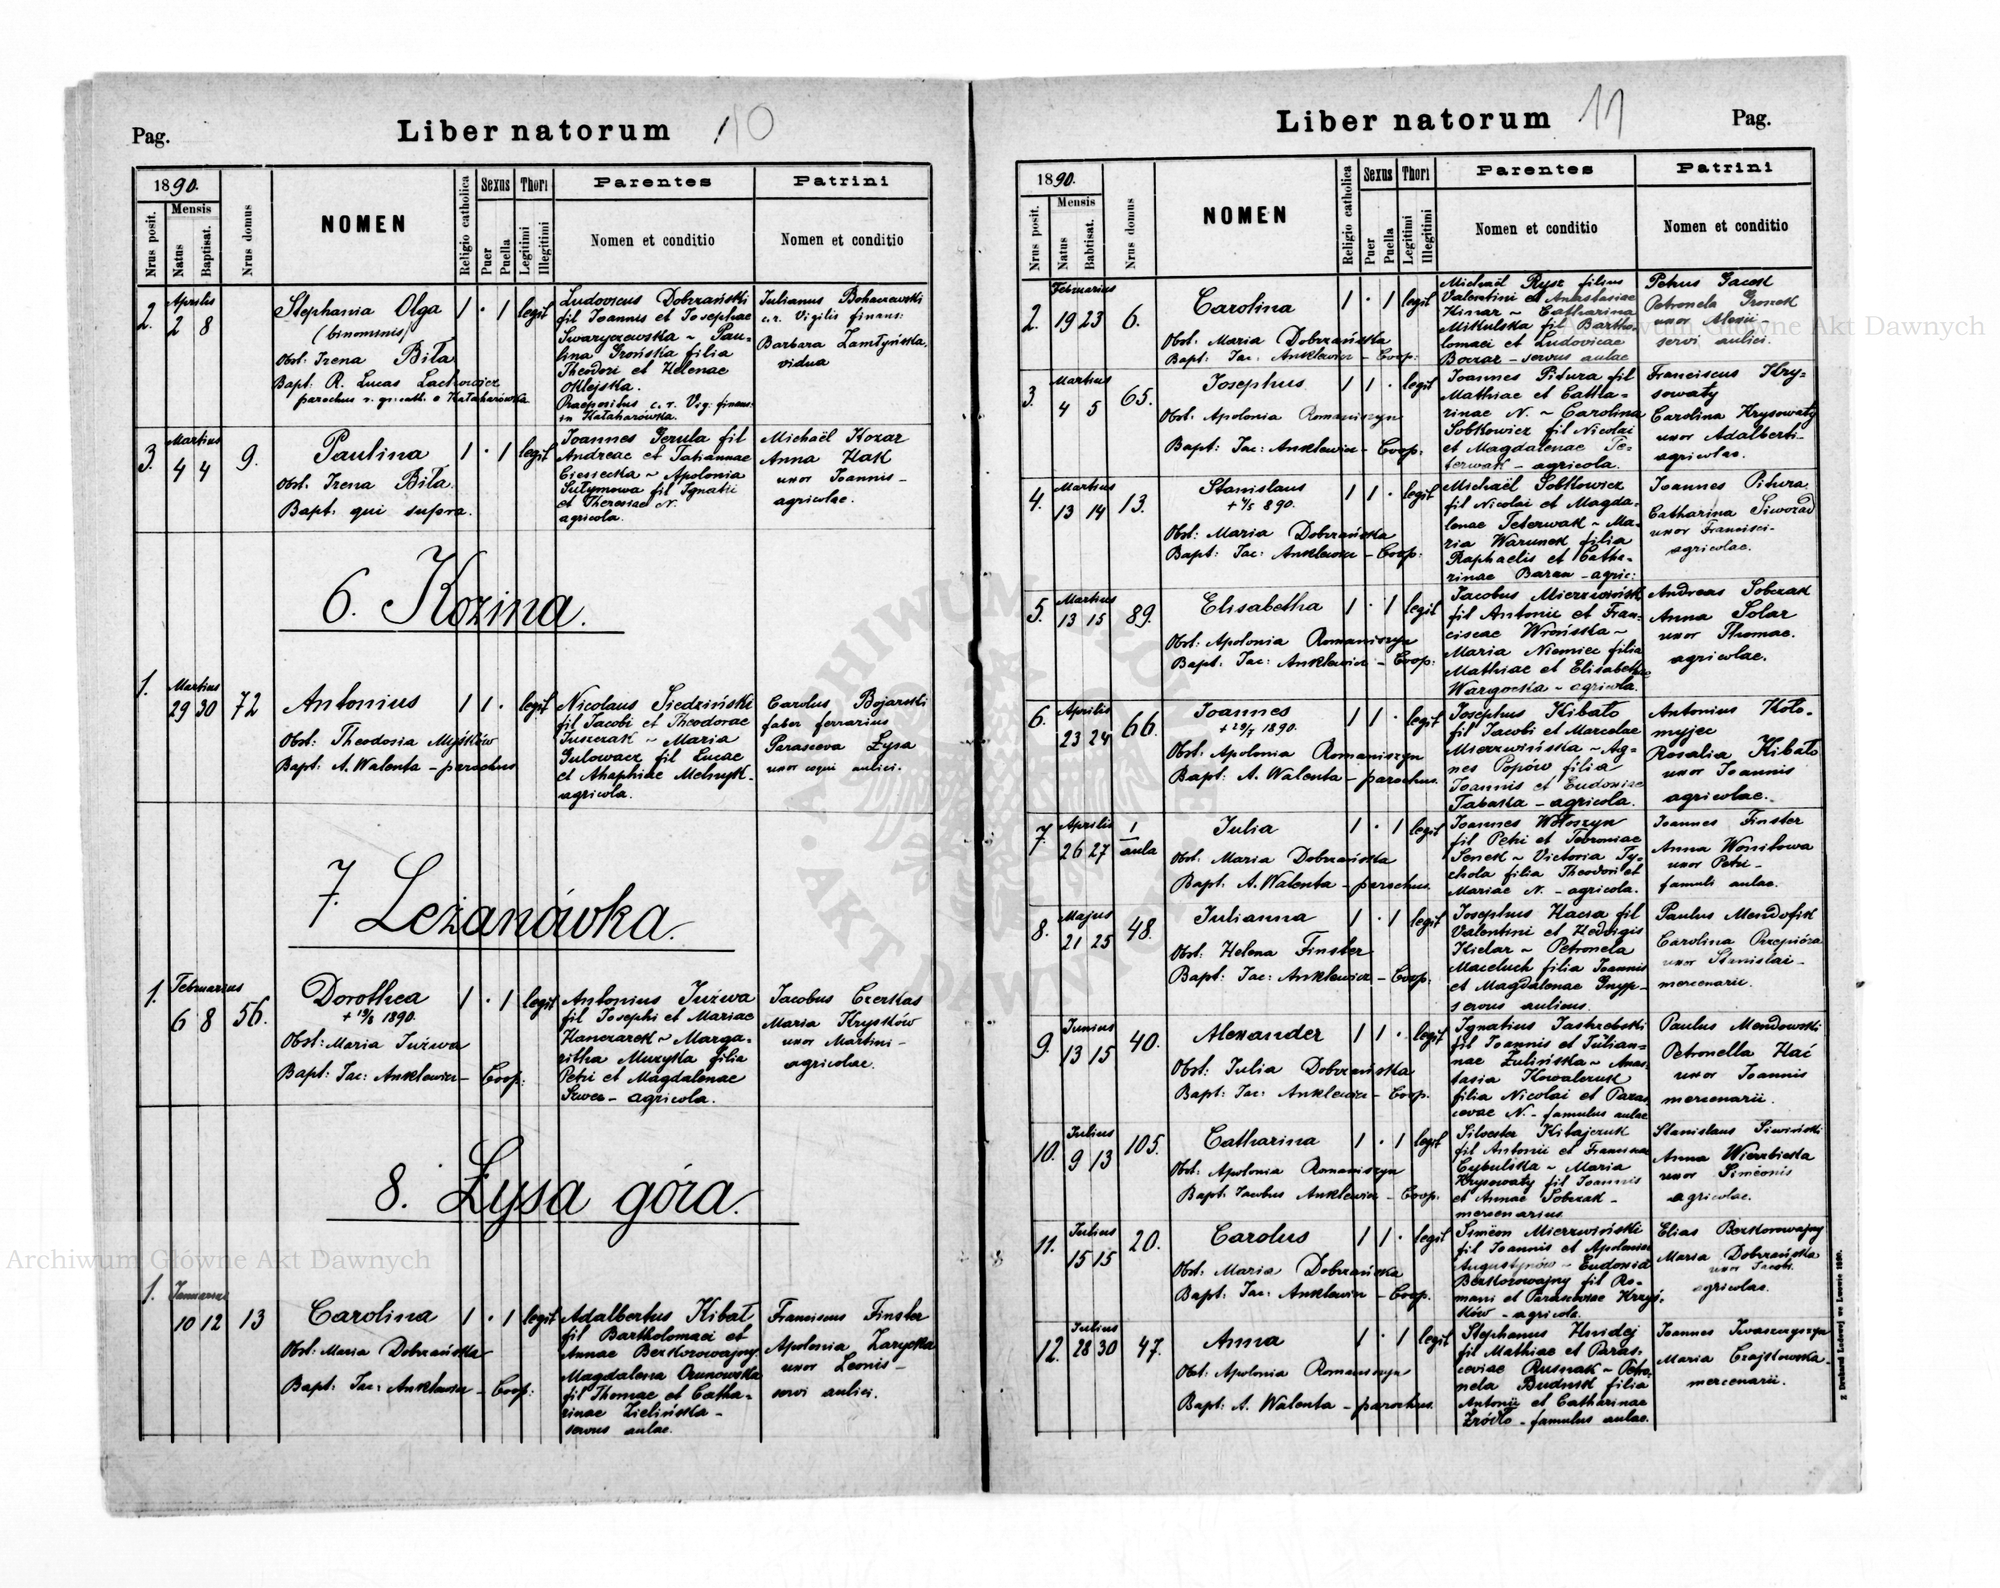 Pag.
Liber natorum 10
1890.
Mensis
Nrus posit.
Natus
Baptisat.
Nrus domus
NOMEN
Religio catholica
Sexus
Puer
Puella
Thori
Legitimi
Illegitimi
Parentes
Nomen et conditio
Patrini
Nomen et conditio
2. Aprilis 2 8
Stephania Olga 1 · 1 legit
(binominis)
Obst. Irena Biła
Bapt: R. Lucas Lachowicz
parochus r. gr. cath. e Kałaharówka
Ludovicus Dobrzański
fil Joannis et Josephae
Swaryczewska ~ Pau-
lina Grońska filia
Theodori et Helenae
Oklejska.
Praepositus c. r. Vig: finans:
in Kałaharówka.
Julianus Bohaczewski
c. r. Vigilis finans:
Barbara Zamłyńska,
vidua
3. Martius 4 4 9.
Paulina 1 · 1 legit
Obst. Irena Biła.
Bapt: qui supra.
Joannes Gerula fil
Andreae et Tatiannae
Ciesiecka ~ Apolonia
Sułymowa fil Ignatii
et Theresiae N.
agricola.
Michaël Kozar
Anna Hak
uxor Joannis -
agricolae.
6. Kozina.
1. Martius 29 30 72
Antonius 1 1 · legit
Obst: Theodosia Myśków
Bapt: A. Walenta - parochus
Nicolaus Siedziński
fil Jacobi et Theodorae
Juszczak ~ Maria
Gulowacz fil Lucae
et Ahaphiae Melnyk -
agricola.
Carolus Bojarski
faber ferrarius
Parasceva Łysa
uxor equi aulici.
7. Leżanówka.
1. Februarius 6 8 56.
Dorothea 1 · 1 legit
+ 19/8 1890.
Obst: Maria Juźwa
Bapt: Jac: Anklewicz - Coop:
Antonius Juźwa
fil Josephi et Mariae
Hanczarek ~ Marga-
ritha Muzyka filia
Petri et Magdalenae
Szwec - agricola.
Jacobus Czerkas
Maria Krysków
uxor Martini -
agricolae.
8. Łysa góra.
1. Januarius 10 12 13
Carolina 1 · 1 legit
Obst: Maria Dobrzańska
Bapt: Jac: Anklewicz - Coop:
Adalbertus Kibał
fil Bartholomaei et
Annae Bezkorowajny
Magdalena Ozunowska
fil Thomae et Catha-
rinae Zielińska -
servus aulae.
Franciscus Finster
Apolonia Zarycka
uxor Leonis -
servi aulici.
Liber natorum 11
Pag.
1890.
Mensis
Nrus posit.
Natus
Babtisat.
Nrus domus
NOMEN
Religio catholica
Sexus
Puer
Puella
Thori
Legitimi
Illegitimi
Parentes
Nomen et conditio
Patrini
Nomen et conditio
2. Februarius 19 23 6.
Carolina 1 · 1 legit
Obst. Maria Dobrzańska
Bapt: Jac: Anklewicz - Coop:
Michaël Rysz filius
Valentini et Anastasiae
Kinar ~ Catharina
Mikulska fil Bartho-
lomaei et Ludovicae
Boczar - servus aulae
Petrus Gacek
Petronela Gronek
uxor Alexii -
servi aulici.
3. Martius 4 5 65.
Josephus 1 1 · legit
Obst. Apolonia Romaniszyn
Bapt: Jac: Anklewicz - Coop:
Joannes Pitura fil
Mathiae et Catha-
rinae N. ~ Carolina
Sobkowicz fil Nicolai
et Magdalenae Te-
terwak - agricola.
Franciscus Kry-
sowaty
Carolina Krysowaty
uxor Adalberti -
agricolae.
4. Martius 13 14 13.
Stanislaus 1 1 · legit
Obst: Maria Dobrzańska
Bapt: Jac: Anklewicz - Coop:
Michaël Sobkowicz
fil Nicolai et Magda-
lenae Teterwak ~ Ma-
ria Warunek filia
Raphaelis et Catha-
rinae Baran - agric:
Joannes Pitura.
Catharina Siworad
uxor Francisci -
agricolae.
5. Martius 13 15 89.
Elisabetha 1 · 1 legit
Obst: Apolonia Romaniszyn
Bapt: Jac: Anklewicz - Coop:
Jacobus Mierzwiński
fil Antonii et Fran-
ciscae Wrońska ~
Maria Niemiec filia
Mathiae et Elisabethae
Wargocka ~ agricola.
Andreas Sobczak
Anna Solar
uxor Thomae.
agricolae.
6. Aprilis 23 24 66.
Joannes 1 1 · legit
Obst: Apolonia Romaniszyn
Bapt: A. Walenta - parochus.
Josephus Kibało
fil Jacobi et Marcelae
Mierzwińska ~ Ag-
nes Popów filia
Joannis et Eudoxiae
Tabaska - agricola.
Antonius Koło-
myjec
Rosalia Kibało
uxor Joannis
agricolae.
7. Aprilis 26 27 1 aula
Julia 1 · 1 legit
Obst. Maria Dobrzańska
Bapt: A. Walenta - parochus.
Joannes Wołoszyn
fil Petri et Febroniae
Senek ~ Victoria Ty-
chola filia Theodori et
Mariae N. - agricola.
Joannes Finster
Anna Wonitowa
uxor Petri -
famuli aulae.
8. Majus 21 25 48.
Julianna 1 · 1 legit
Obst. Helena Finster
Bapt: Jac: Anklewicz - Coop:
Josephus Hacia fil
Valentini et Hedvigis
Kielar ~ Petronela
Maceluch filia Joannis
et Magdalenae Gnyp -
servus aulicus.
Paulus Mendofik
Carolina Przepióra
uxor Stanislai -
mercenarii.
9. Junius 13 15 40.
Alexander 1 1 · legit
Obst: Julia Dobrzańska
Bapt: Jac: Anklewicz - Coop.
Ignatius Jastrebski
fil Joannis et Julian-
nae Żulińska ~ Anas-
tasia Kowalczuk
filia Nicolai et Paras-
cevae N. - famulus aulae
Paulus Mendowski
Petronella Hać
uxor Joannis
mercenarii.
10. Julius 9 13 105.
Catharina 1 · 1 legit
Obst: Apolonia Romaniszyn
Bapt: Jacobus Anklewicz - Coop.
Silvester Kitajczuk
fil Antonii et Franciscae
Cybulska ~ Maria
Krysowaty fil Joannis
et Annae Sobczak -
mercenarius.
Stanislaus Siwiński
Anna Wierzbicka
uxor Simeonis
agricolae.
11. Julius 15 15 20.
Carolus 1 1 · legit
Obst: Maria Dobrzańska
Bapt: Jac: Anklewicz - Coop.
Simëon Mierzwiński
fil Joannis et Apoloniae
Augustynów ~ Eudoxia
Bezkorowajny fil Ro-
mani et Parasceviae Krzyś-
ków - agricola.
Elias Bezkorowajny
Maria Dobrzańska
uxor Jacobi.
agricolae.
12. Julius 28 30 47.
Anna 1 · 1 legit
Obst: Apolonia Romaniszyn
Bapt: A. Walenta - parochus.
Stephanus Hnidej
fil Mathiae et Paras-
ceviae Rusnak ~ Petro-
nela Budnik filia
Antonii et Catharinae
Źródło - famulus aulae.
Joannes Iwaszczyszyn
Maria Czajkowska -
mercenarii.
Z Drukarni Ludowej we Lwowie 1890.
Archiwum Główne Akt Dawnych
Archiwum Główne Akt Dawnych
ARCHIWUM GŁÓWNE AKT DAWNYCH